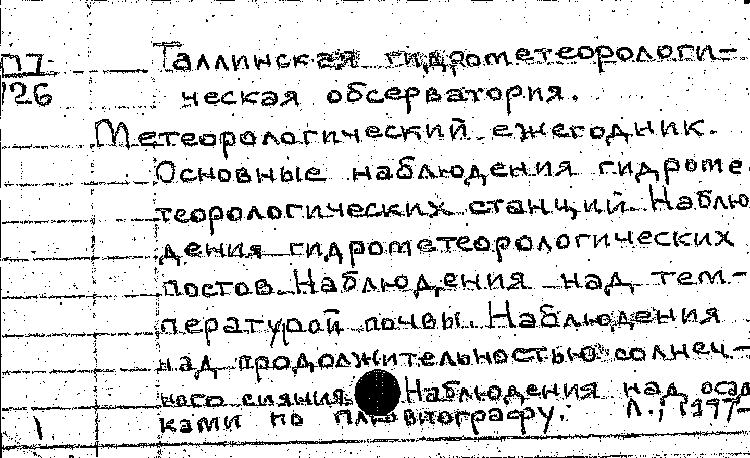 П7 Таллинская гидрометеорологи-
126 ческая обсерватория.
Метеорологический ежегодник.
Основные наблюдения гидроме
теорологических станций. Наблю
дения гидрометеорологических
постов. Наблюдения над тем-
пературой почвы. Наблюдения
над продолжительностью солнеч-
ного сияния. Наблюдения над осад
ками по плювиографу. Л.,